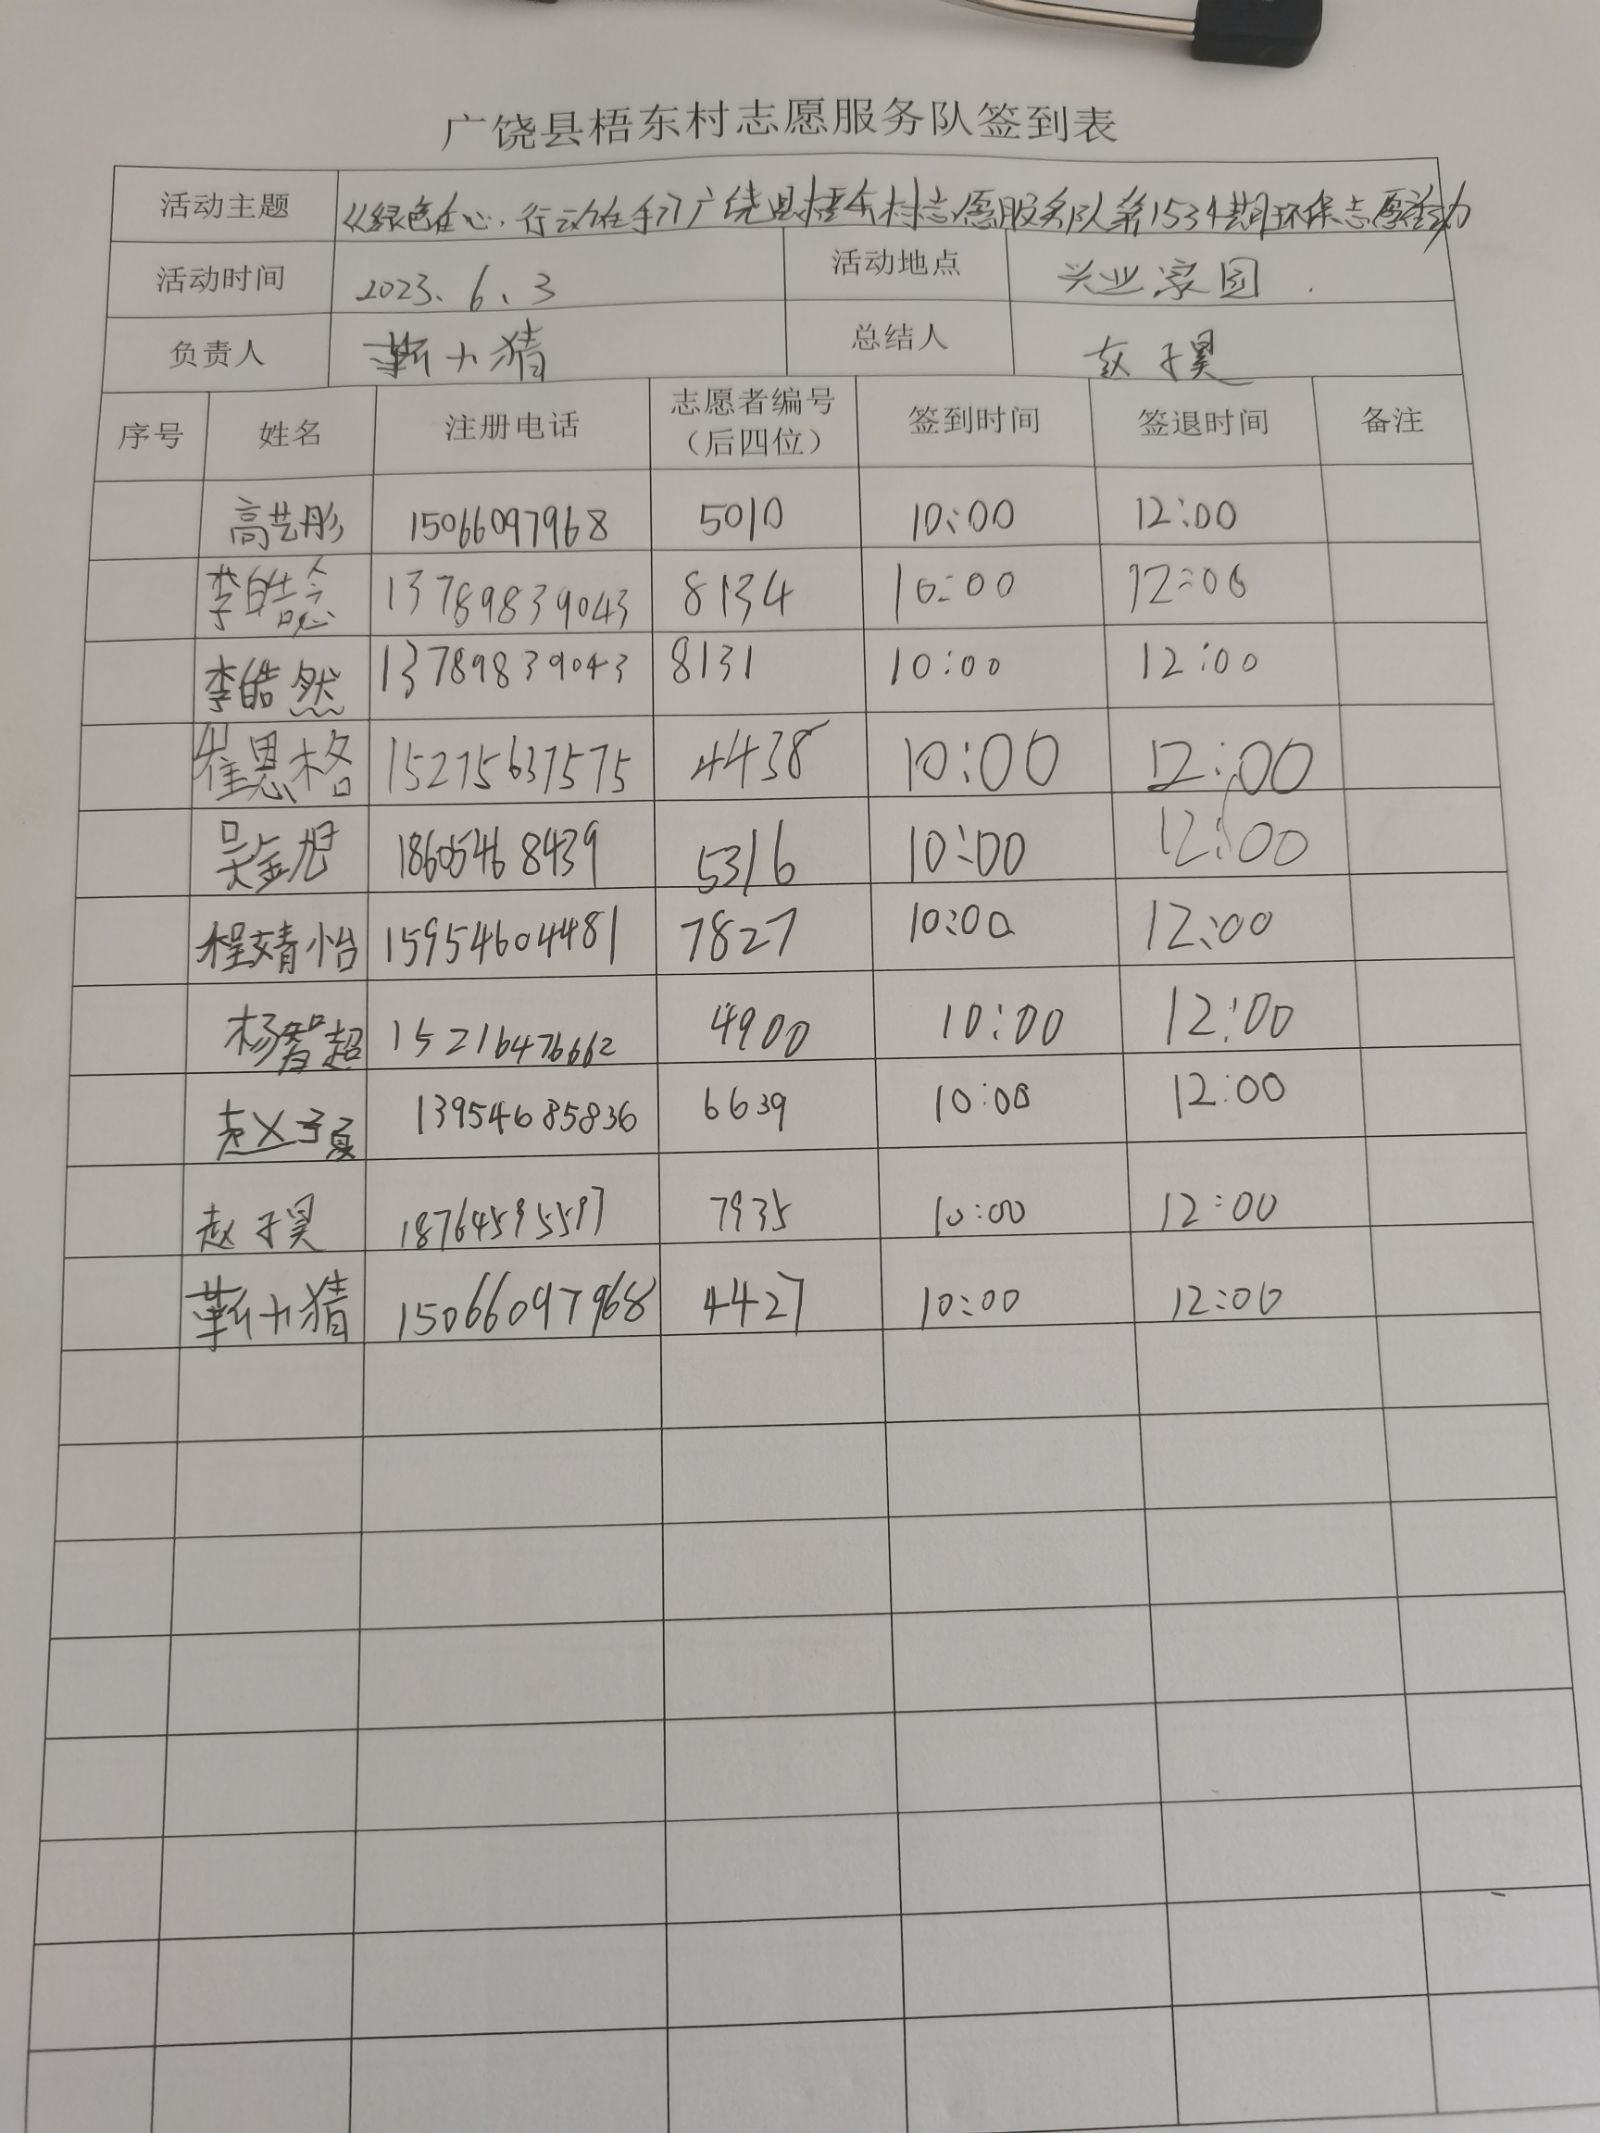 广饶县梧东村志愿服务队签到表
活动主题 《绿色在心,行动在手》广饶县梧东村志愿服务队第1534期环保志愿活动
活动时间 2023.6.3 活动地点 兴业家园
负责人 靳小猜 总结人 赵子昊
序号 姓名 注册电话 志愿者编号（后四位） 签到时间 签退时间 备注
高艺彤 15066097968 5010 10:00 12:00
李皓 13789839043 8134 10:00 12:00
李皓然 13789839043 8131 10:00 12:00
崔恩格 15275637575 4438 10:00 12:00
吴金旭 18605468439 5316 10:00 12:00
程靖怡 15954604481 7827 10:00 12:00
杨智超 15216476662 4900 10:00 12:00
赵子夏 13954685836 6639 10:00 12:00
赵子昊 18764595597 7935 10:00 12:00
靳小猜 15066097968 4427 10:00 12:00